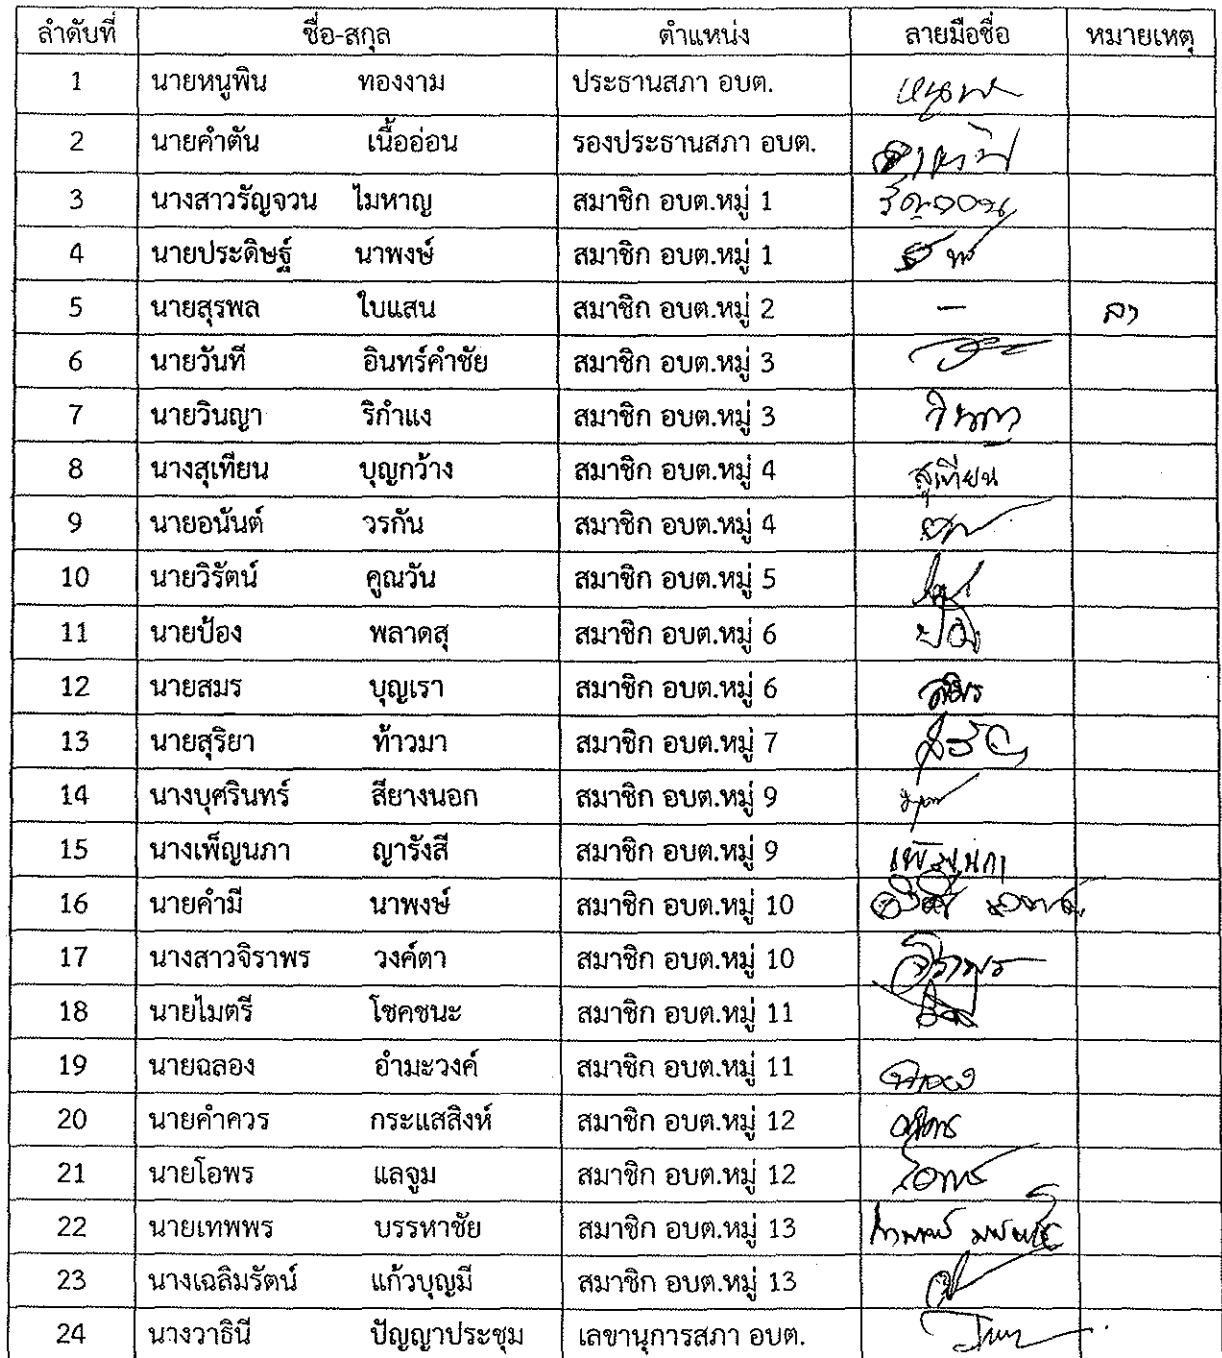 ลำดับที่ ชื่อ-สกุล ตำแหน่ง ลายมือชื่อ หมายเหตุ
1 นายหนูพิน ทองงาม ประธานสภา อบต.
2 นายคำตัน เนื้ออ่อน รองประธานสภา อบต.
3 นางสาวรัญจวน ไมหาญ สมาชิก อบต.หมู่ 1 รัญจวน
4 นายประดิษฐ์ นาพงษ์ สมาชิก อบต.หมู่ 1
5 นายสุรพล ใบแสน สมาชิก อบต.หมู่ 2 – ลา
6 นายวันที อินทร์คำชัย สมาชิก อบต.หมู่ 3
7 นายวินญา ริกำแง สมาชิก อบต.หมู่ 3
8 นางสุเทียน บุญกว้าง สมาชิก อบต.หมู่ 4 สุเทียน
9 นายอนันต์ วรกัน สมาชิก อบต.หมู่ 4
10 นายวิรัตน์ คูณวัน สมาชิก อบต.หมู่ 5
11 นายป้อง พลาดสุ สมาชิก อบต.หมู่ 6 ป้อง
12 นายสมร บุญเรา สมาชิก อบต.หมู่ 6 สมร
13 นายสุริยา ท้าวมา สมาชิก อบต.หมู่ 7
14 นางบุศรินทร์ สียางนอก สมาชิก อบต.หมู่ 9
15 นางเพ็ญนภา ญารังสี สมาชิก อบต.หมู่ 9 เพ็ญนภา
16 นายคำมี นาพงษ์ สมาชิก อบต.หมู่ 10
17 นางสาวจิราพร วงค์ตา สมาชิก อบต.หมู่ 10 จิราพร
18 นายไมตรี โชคชนะ สมาชิก อบต.หมู่ 11
19 นายฉลอง อำมะวงค์ สมาชิก อบต.หมู่ 11 ฉลอง
20 นายคำควร กระแสสิงห์ สมาชิก อบต.หมู่ 12
21 นายโอพร แลจูม สมาชิก อบต.หมู่ 12 โอพร
22 นายเทพพร บรรหาชัย สมาชิก อบต.หมู่ 13
23 นางเฉลิมรัตน์ แก้วบุญมี สมาชิก อบต.หมู่ 13
24 นางวาธินี ปัญญาประชุม เลขานุการสภา อบต.